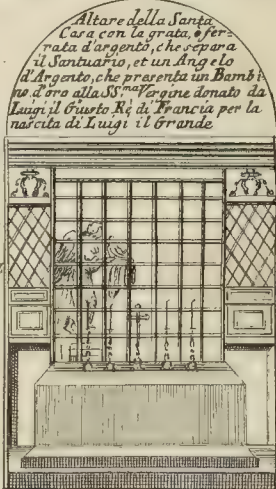 Altare della Santa
Casa con la grata, ò fer-
rata d'argento, che sepàra
il Santuario, et un Angelo
d'Argento, che presenta un Bambi-
no d'oro alla SS.ma Vergine donato da
Luigi il Giusto Rè di Francia per la
nascita di Luigi il Grande